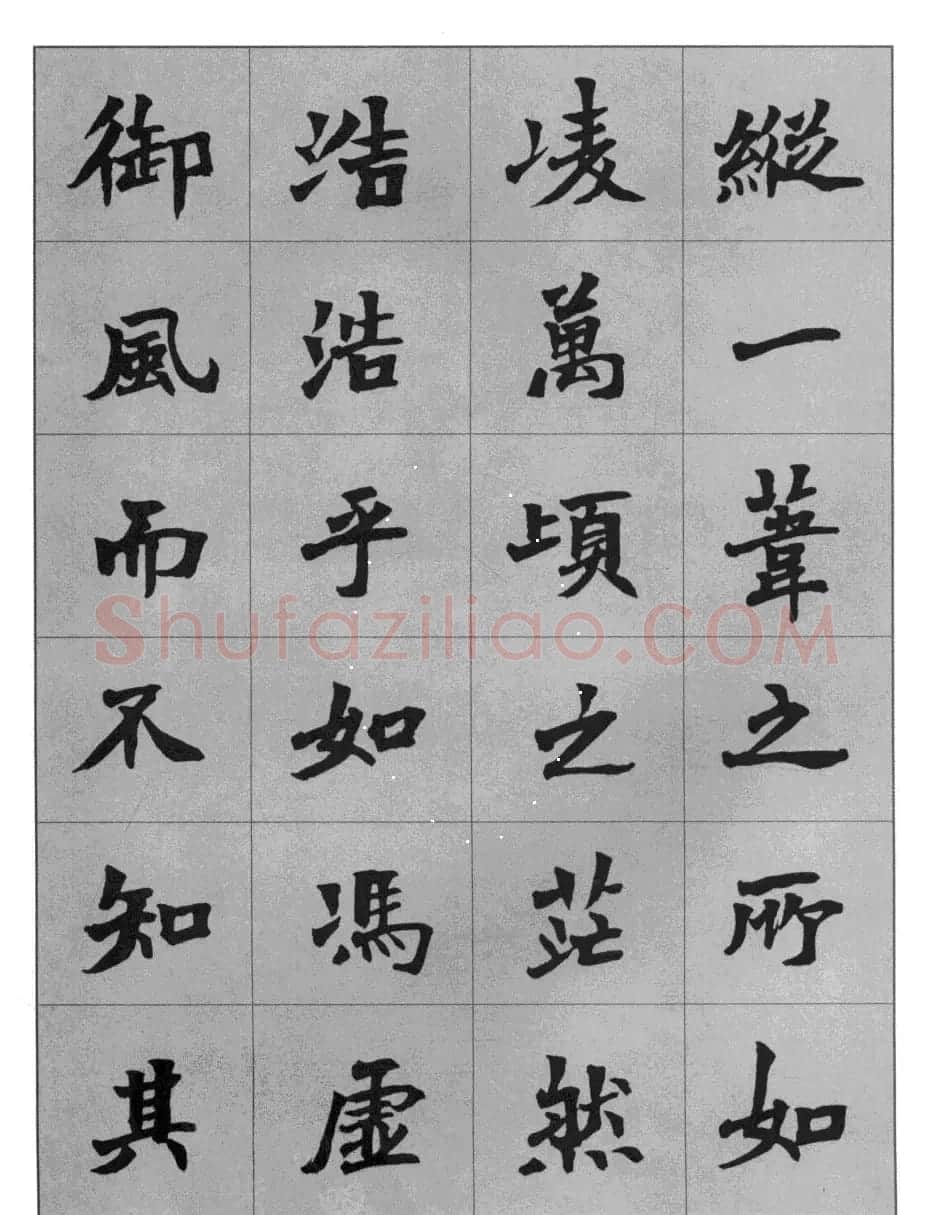 縱一葦之所如
凌萬頃之茫然
浩浩乎如馮虛
御風而不知其
Shufaziliao.COM